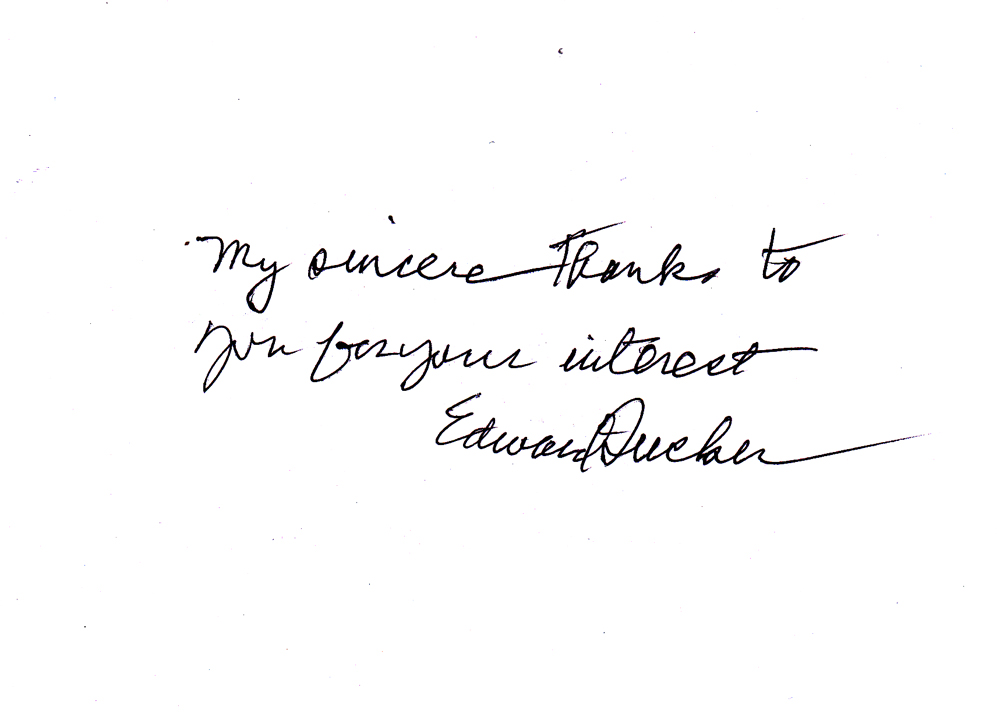 My sincere Thanks to
you for your interest
Edward Ducker